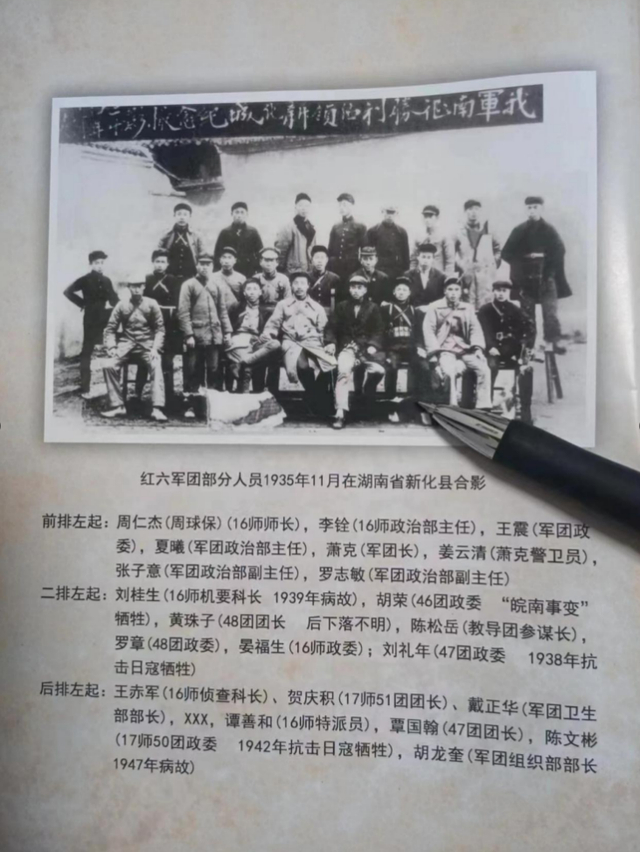 我軍南征勝利占領新化城紀念攝影
红六军团部分人员1935年11月在湖南省新化县合影
前排左起：周仁杰(周球保)(16师师长)，李铨(16师政治部主任)，王震(军团政
委)，夏曦(军团政治部主任)，萧克(军团长)，姜云清(萧克警卫员)，
张子意(军团政治部副主任)，罗志敏(军团政治部副主任)
二排左起：刘桂生(16师机要科长 1939年病故)，胡荣(46团政委 “皖南事变”
牺牲)，黄珠子(48团团长 后下落不明)，陈松岳(教导团参谋长)，
罗章(48团政委)，晏福生(16师政委)；刘礼年(47团政委 1938年抗
击日寇牺牲)
后排左起：王赤军(16师侦查科长)、贺庆积(17师51团团长)、戴正华(军团卫生
部部长)，XXX，谭善和(16师特派员)，覃国翰(47团团长)，陈文彬
(17师50团政委 1942年抗击日寇牺牲)，胡龙奎(军团组织部部长
1947年病故)